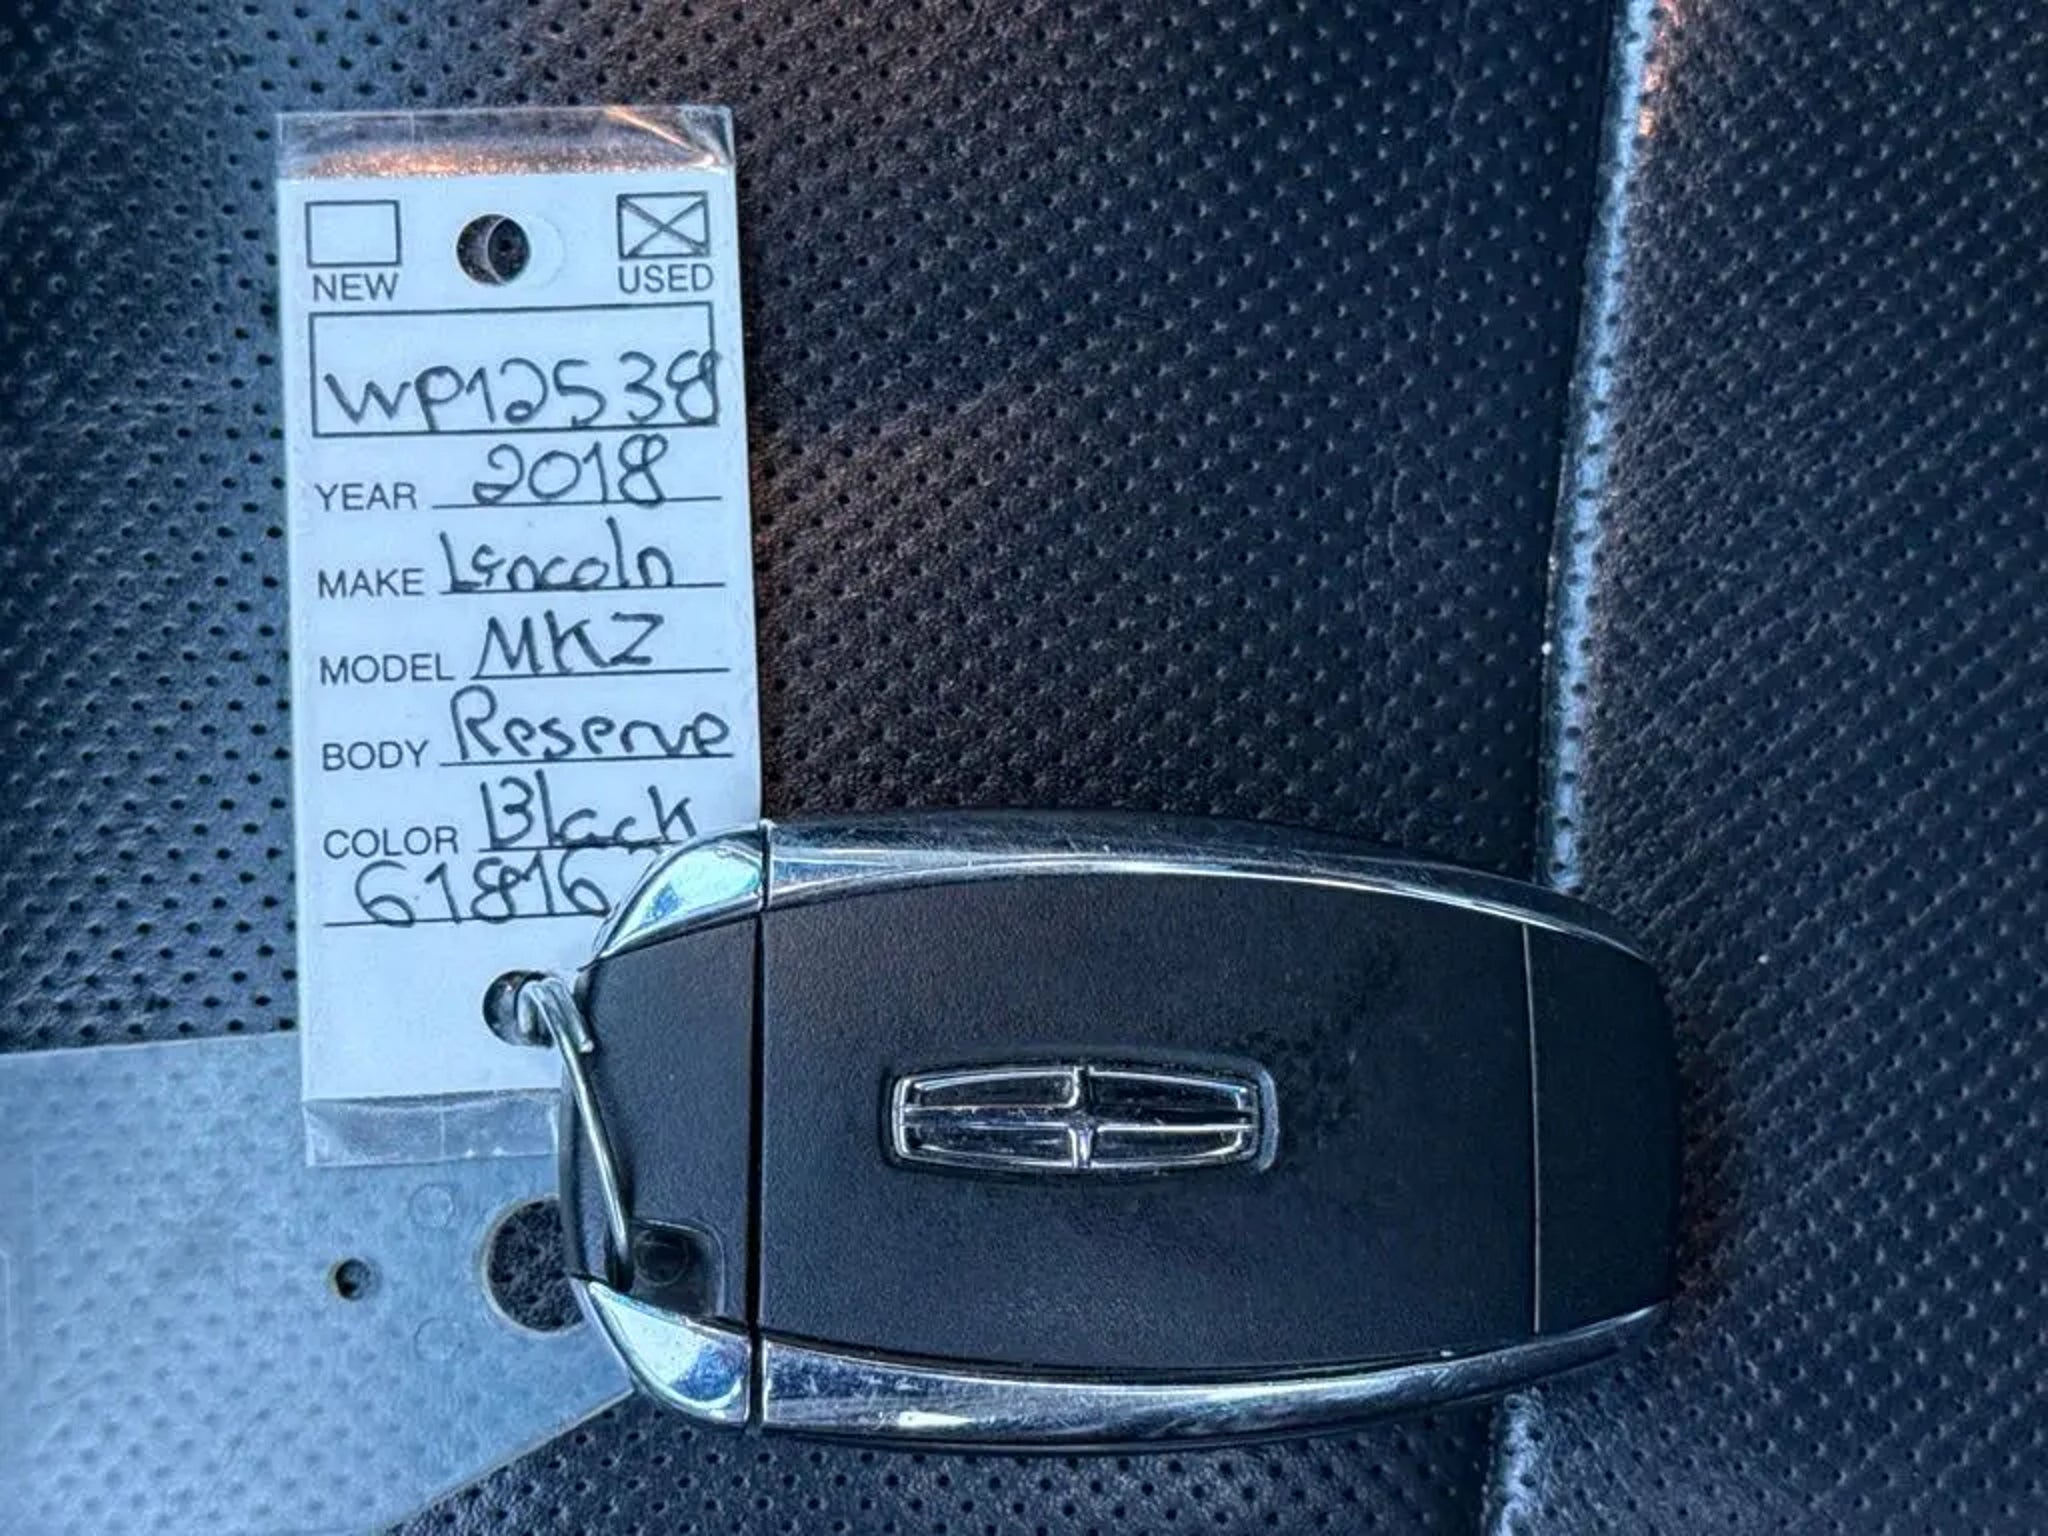 NEW USED
WP12538
YEAR 2018
MAKE Lincoln
MODEL MKZ
BODY Reserve
COLOR Black
61816